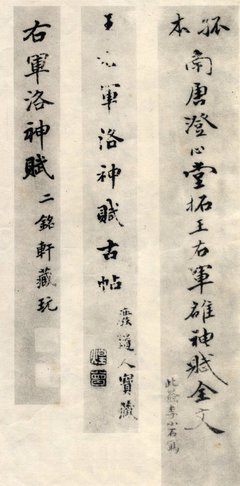 孤本
南唐澄心堂拓王右軍雒神賦全文
此簽李小石寫
王右軍洛神賦古帖
道人寶藏
右軍洛神賦
二銘軒藏玩